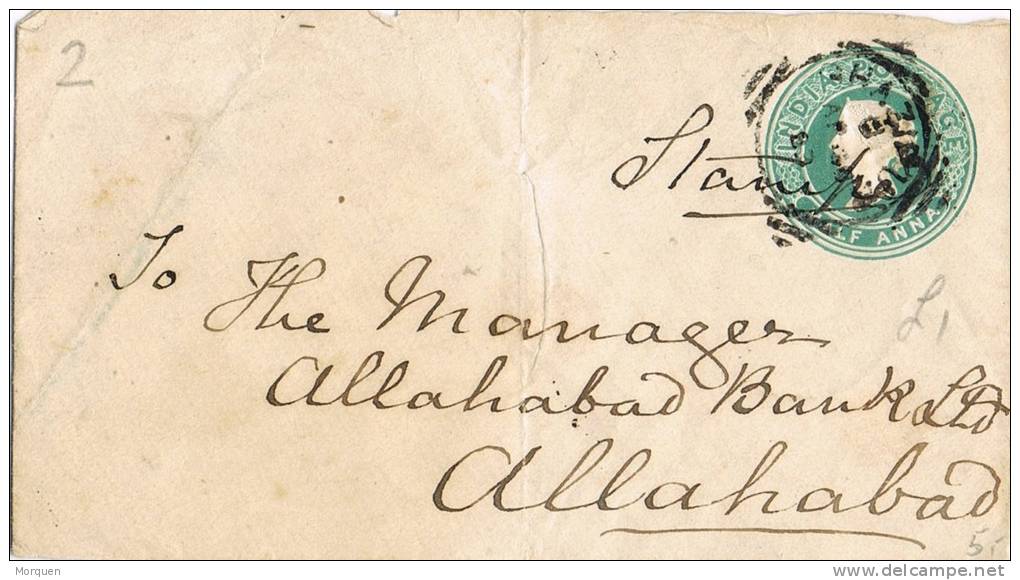 2
INDIA POSTAGE
HALF ANNA
Stamp
To
The Manager
Allahabad Bank Ltd
Allahabad
£1
5/-
Morquen
delcampe.net